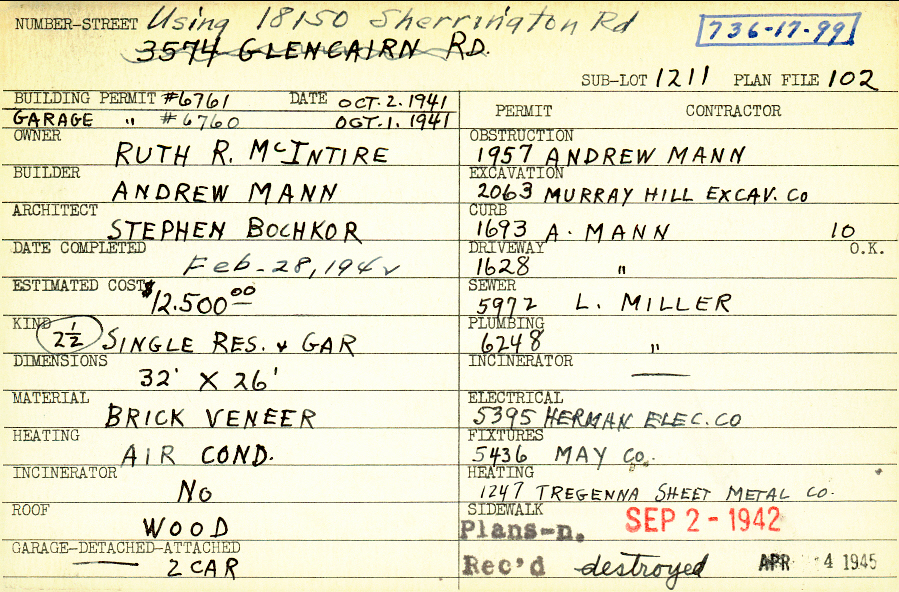 NUMBER-STREET Using 18150 Sherrington Rd
3574 GLENCAIRN RD.
736-17-99
SUB-LOT 1211 PLAN FILE 102
BUILDING PERMIT #6761 DATE OCT. 2. 1941
GARAGE " #6760 OCT. 1. 1941
OWNER
RUTH R. McINTIRE
BUILDER
ANDREW MANN
ARCHITECT
STEPHEN BOCHKOR
DATE COMPLETED
Feb-28, 1942
ESTIMATED COST
$12.500 00
KIND
2 1/2 SINGLE RES. & GAR
DIMENSIONS
32' X 26'
MATERIAL
BRICK VENEER
HEATING
AIR COND.
INCINERATOR
NO
ROOF
WOOD
GARAGE-DETACHED-ATTACHED
2 CAR
PERMIT CONTRACTOR
OBSTRUCTION
1957 ANDREW MANN
EXCAVATION
2063 MURRAY HILL EXCAV. Co
CURB
1693 A. MANN 10
DRIVEWAY O.K.
1628 "
SEWER
5972 L. MILLER
PLUMBING
6248 "
INCINERATOR
—
ELECTRICAL
5395 HERMAN ELEC. CO
FIXTURES
5436 MAY Co.
HEATING
1247 TREGENNA SHEET METAL CO.
SIDEWALK
Plans-n. SEP 2 - 1942
Rec'd destroyed APR 4 1945